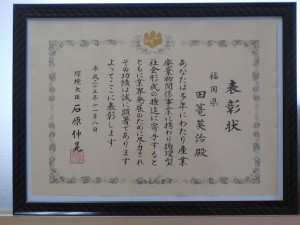 表彰状
福岡県
田菴英治殿
あなたは多年にわたり産業
廃棄物関係事業に携わり循環型
社会形成の推進に寄与すると
ともに業界発展のために尽力され
その功績は誠に顕著であります
よってここに表彰します
平成二十五年十一月八日
環境大臣 石原伸晃